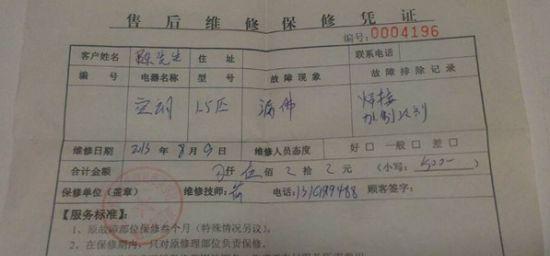 售后维修保修凭证
编号:0004196
客户姓名 陈先生 住址 联系电话
编号 电器名称 型号 故障现象 故障排除记录
空调 1.5匹 漏佛 焊接
加制冷剂
维修日期 2013年8月9日 维修人员态度 好口 一般口 差口
合计金额 仟伍佰 拾 元 (小写: 500—)
保修单位(盖章) 维修技师: 电话: 顾客签字:
【服务标准】:
1、原故障部位保修叁个月(特殊情况另议)。
2、在保修期内,只对原修理部位负责保修。